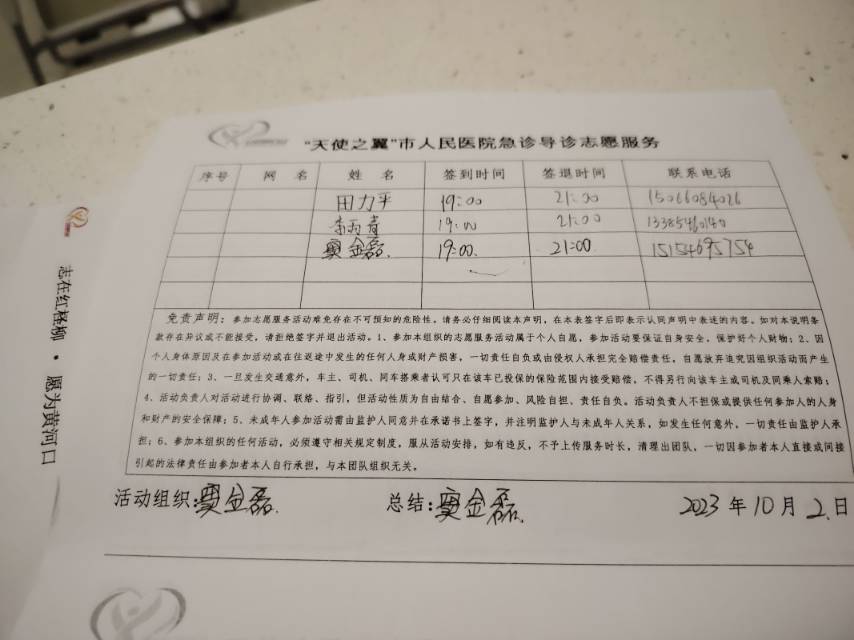 "天使之翼"市人民医院急诊导诊志愿服务
序号 网 名 姓 名 签到时间 签退时间 联系电话
田力平 19:00 21:00 15066084026
李丙青 19:00 21:00
窦金磊 19:00. 21:00. 15154695754
免责声明：参加志愿服务活动难免存在不可预知的危险性，请务必仔细阅读本声明，在本表签字后即表示认同声明中表述的内容。如对本说明条
款存在异议或不能接受，请拒绝签字并退出活动。1、参加本组织的志愿服务活动属于个人自愿，参加活动要保证自身安全，保护好个人财物；2、因
个人身体原因及在参加活动或在往返途中发生的任何人身或财产损害，一切责任自负或由侵权人承担完全赔偿责任，自愿放弃追究因组织活动而产生
的一切责任；3、一旦发生交通意外，车主、司机、同车搭乘者认可只在该车已投保的保险范围内接受赔偿，不得另行向该车主或司机及同乘人索赔；
4、活动负责人对活动进行协调、联络、指引，但活动性质为自由结合、自愿参加、风险自担、责任自负。活动负责人不担保或提供任何参加人的人身
和财产的安全保障；5、未成年人参加活动需由监护人同意并在承诺书上签字，并注明监护人与未成年人关系，如发生任何意外，一切责任由监护人承
担；6、参加本组织的任何活动，必须遵守相关规定制度，服从活动安排，如有违反，不予上传服务时长，清理出团队，一切因参加者本人直接或间接
引起的法律责任由参加者本人自行承担，与本团队组织无关。
活动组织:窦金磊. 总结:窦金磊. 2023 年 10 月 2 日
志在红柽柳 · 愿为黄河口